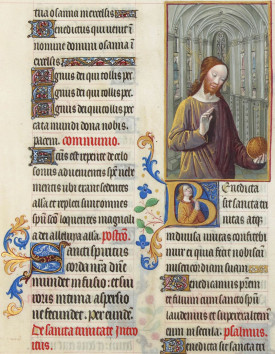 tua osanna in excelsis
Benedictus qui venit in
nomine domini osanna in
excelsis
Agnus dei qui tollis pec
Agnus dei qui tollis pec
Agnus dei qui tollis pec
cata mundi dona nobis
pacem. communio.
Factus est repente de celo
sonus advenientis spūs vehe
mentis ubi erant sedentes
alla et repleti sunt omnes
spū scō loquentes magnalia
a dei alleluya alla. postcō.
Sancti spiritus
corda nrā dn̄e
mundet infusio: et sui
roris intima aspersio
ne fecundet. per.
De sancta trinitate Introi
tus.
Benedicta
sit sancta tri
nitas atq̄
indivisa unitas confitebi
mur ei quia fecit nobiscū
misericordiam suam
Benedicamus patrem
et filium cum sancto spū
laudemus et superexaltemus
eum in secula. psalmus.
Benedicta sit